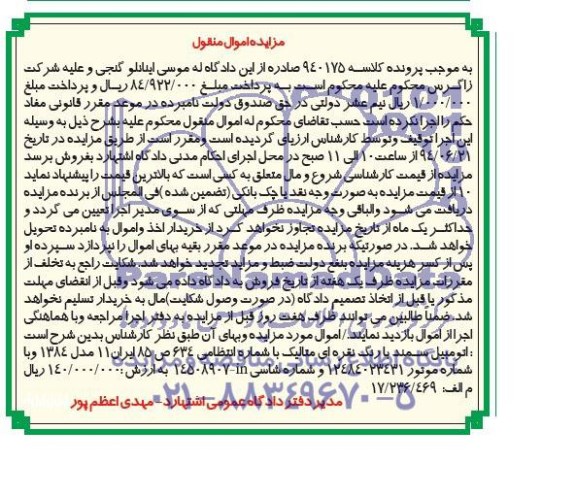 مزایده اموال منقول
به موجب پرونده کلاسه ۹۴۰۱۷۵ صادره از این دادگاه له موسی اینانلو گنجی و علیه شرکت
زاگرس محکوم علیه محکوم است به پرداخت مبلغ ۸۴/۹۲۲/۰۰۰ ریال و پرداخت مبلغ
۱/۰۰۰/۰۰۰ ریال نیم عشر دولتی در حق صندوق دولت نامبرده در موعد مقرر قانونی مفاد
حکم را اجرا نکرده است حسب تقاضای محکوم له اموال منقول محکوم علیه بشرح ذیل به وسیله
این اجرا توقیف و توسط کارشناس ارزیابی گردیده است و مقرر است از طریق مزایده در تاریخ
۹۴/۰۶/۲۱ از ساعت ۱۰ الی ۱۱ صبح در محل اجرای احکام مدنی دادگاه اشتهارد بفروش برسد
مزایده از قیمت کارشناسی شروع و مال متعلق به کسی است که بالاترین قیمت را پیشنهاد نماید
۱۰٪ از قیمت مزایده به صورت وجه نقد یا چک بانکی (تضمین شده) فی المجلس از برنده مزایده
دریافت می شود والباقی وجه مزایده ظرف مهلتی که از سوی مدیر اجرا تعیین می گردد و
حداکثر یک ماه از تاریخ مزایده تجاوز نخواهد کرد از خریدار اخذ واموال به نامبرده تحویل
خواهد شد. در صورتیکه برنده مزایده در موعد مقرر بقیه بهای اموال را نپردازد سپرده او
پس از کسر هزینه مزایده بنفع دولت ضبط و مزاید تجدید خواهد شد. شکایت راجع به تخلف از
مقررات مزایده ظرف یک هفته از تاریخ فروش به دادگاه داده می شود وقبل از انقضای مهلت
مذکور یا قبل از اتخاذ تصمیم دادگاه (در صورت وصول شکایت) مال به خریدار تسلیم نخواهد
شد. ضمنا طالبین می توانند ظرف هفت روز قبل از مزایده به دفتر اجرا مراجعه وبا هماهنگی
اجرا از اموال بازدید نمایند./ اموال مورد مزایده وبهای آن طبق نظر کارشناس بدین شرح است
: اتومبیل سمند با رنگ نقره ای متالیک با شماره انتظامی ۶۳۴ ص ۸۵ ایران ۱۱ مدل ۱۳۸۴ وبا
شماره موتور ۱۲۴۸۴۰۲۳۴۳۱ و شماره شاسی in-۱۴۵۰۸۹۰۷ به ارزش: ۱۴۰/۰۰۰/۰۰۰ ریال
م الف: ۱۷/۲۳۶/۴۶۹
مدیر دفتر دادگاه عمومی اشتهارد- مهدی اعظم پور
ParsNamadData
۰۲۱-۸۸۳۴۹۶۷۰-۵